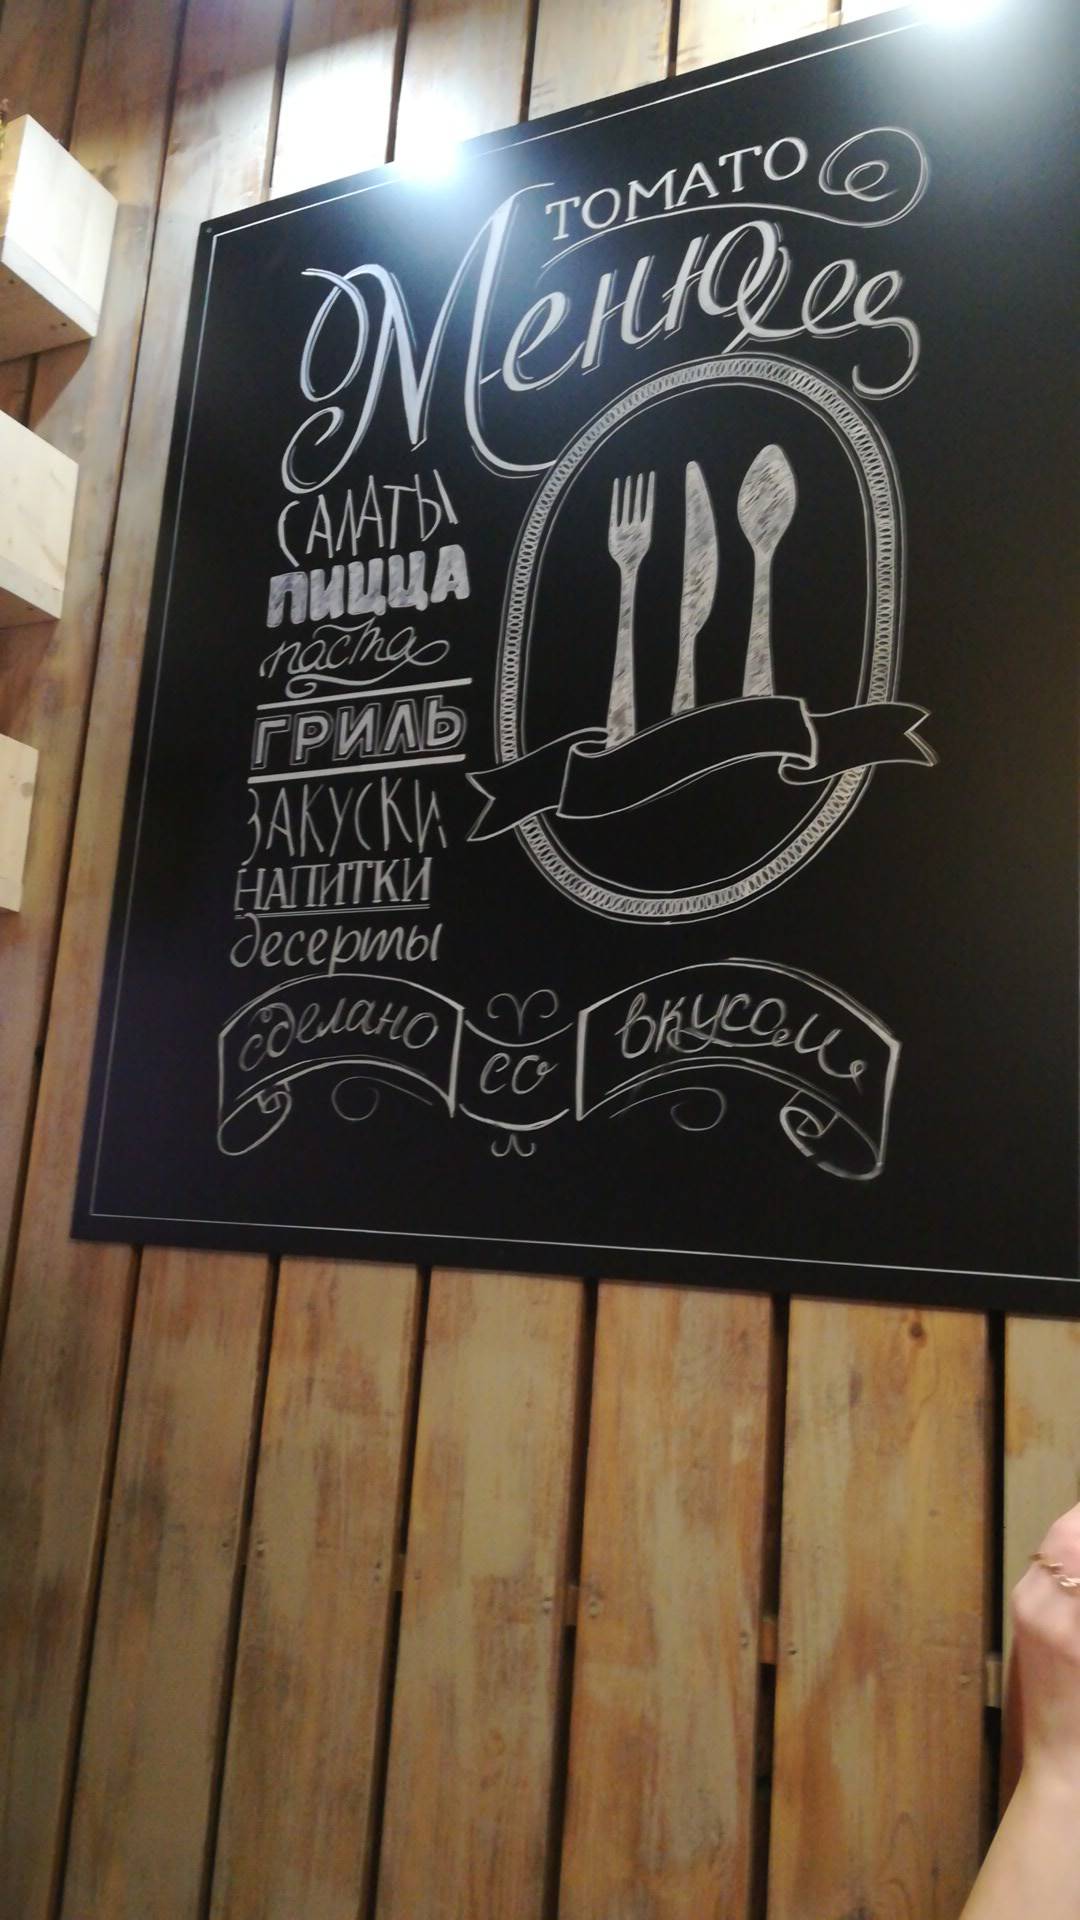 ТОМАТО
Меню
САЛАТЫ
ПИЦЦА
паста
ГРИЛЬ
ЗАКУСКИ
НАПИТКИ
десерты
сделано со вкусом